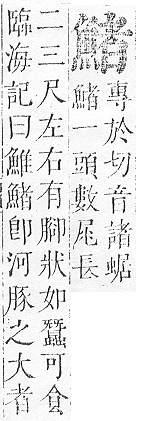 鯺
專於切音諸蜛
鯺一頭數尾長
二三尺左右有腳狀如蠶可食
臨海記曰鯡鯺卽河豚之大者